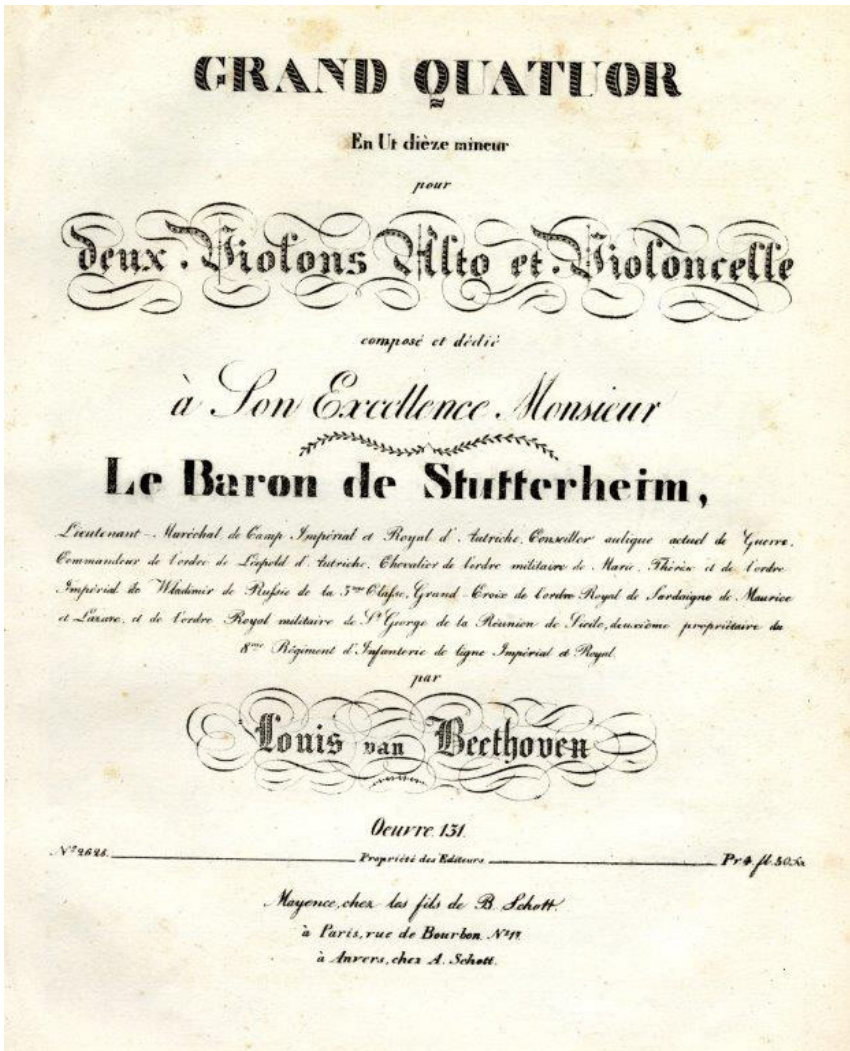 GRAND QUATUOR
En Ut dièze mineur
pour
deux Violons Alto et Violoncelle
composé et dédié
à Son Excellence Monsieur
Le Baron de Stutterheim,
Lieutenant-Maréchal de Camp Impérial et Royal d'Autriche, Conseiller aulique actuel de Guerre,
Commandeur de l'ordre de Léopold d'Autriche, Chevalier de l'ordre militaire de Marie-Thérèse et de l'ordre
Impérial de Wladimir de Russie de la 3me Classe, Grand-Croix de l'ordre Royal de Sardaigne de Maurice
et Lazare, et de l'ordre Royal militaire de St George de la Réunion de Sicile, deuxième propriétaire du
8me Régiment d'Infanterie de ligne Impérial et Royal.
par
Louis van Beethoven
Oeuvre 131.
No 2628. Propriété des Editeurs Pr 4 fl. 30 
Mayence, chez les fils de B. Schott.
à Paris, rue de Bourbon No 17
à Anvers, chez A. Schott.